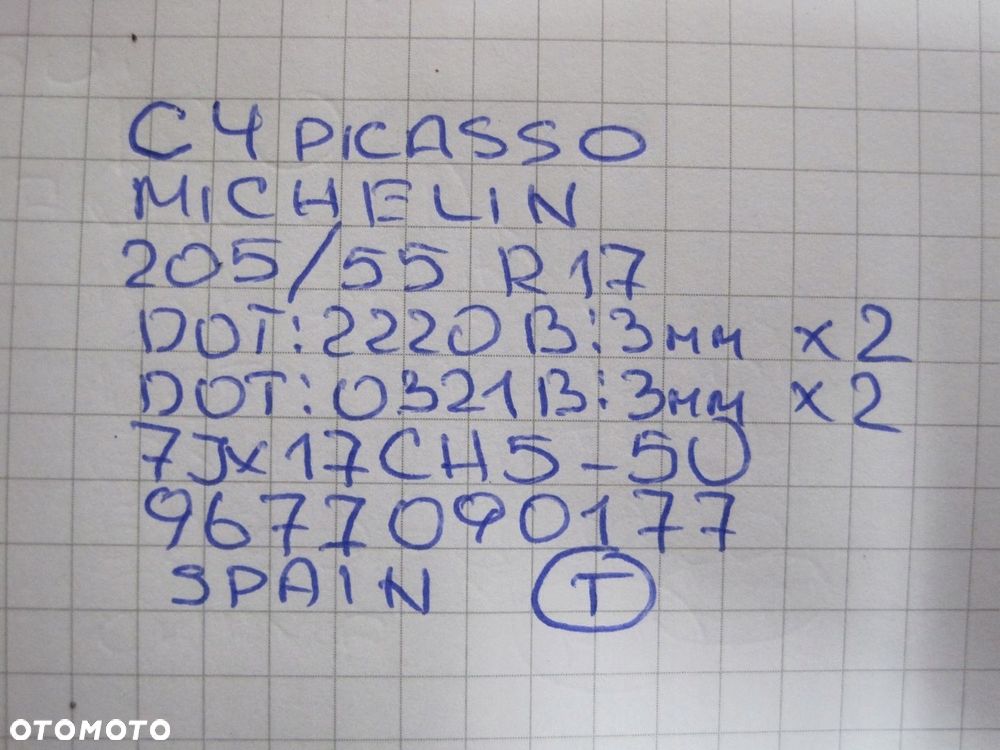 C4 PICASSO
MICHELIN
205/55 R17
DOT:2220 B:3мм x2
DOT:0321 B:3мм x2
7Jx17CH5-50
9677090177
SPAIN T
OTOMOTO